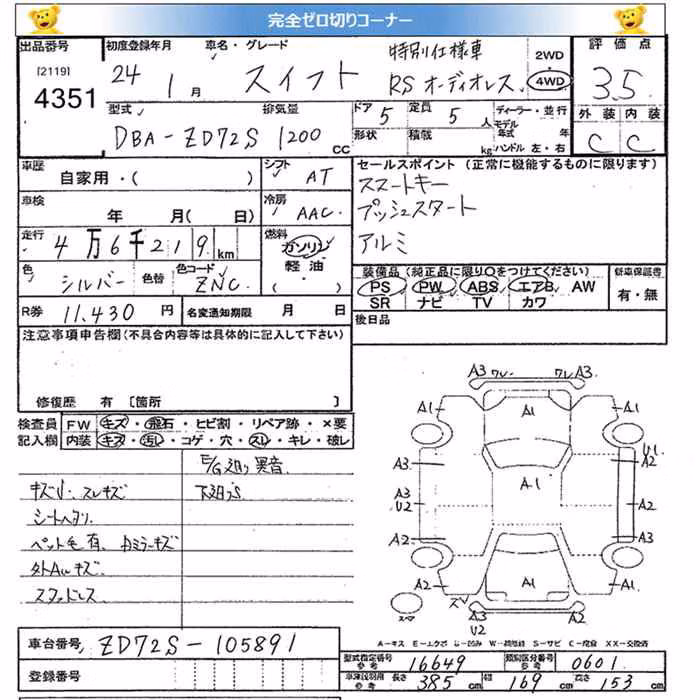 完全ゼロ切りコーナー
出品番号 初度登録年月 車名・グレード 特別仕様車 2WD 評価点
[2119] 4351 24 1月 スイフト RSオーディオレス 4WD 3.5
型式 排気量 ドア 5 定員 5人 ディーラー・並行 外装 内装
DBA-ZD72S 1200 cc 形状 積載 kg モデル年式 年 ハンドル 左・右 C C
車歴 自家用・( ) シフト AT セールスポイント (正常に機能するものに限ります)
スマートキー
車検 年 月( 日) 冷房 AAC プッシュスタート
走行 4万6千219km 燃料 ガソリン 軽油・( ) アルミ
色 シルバー 色替 色コード ZNC 装備品 (純正品に限り○をつけてください) 新車保証書
PS PW ABS エアB AW 有・無
SR ナビ TV カワ
R券 11,430円 名変通知期限 月 日 後日品
注意事項申告欄 (不具合内容等は具体的に記入して下さい)
修復歴 有 [箇所 ]
検査員 FW キズ・飛石・ヒビ割・リペア跡・×要
記入欄 内装 キズ・汚レ・コゲ・穴・スレ・キレ・破レ
E/G廻り異音
キズ小・スレキズ 下廻りS
シートヘタリ
ペット毛有、カミラーキズ
外AWキズ
スタッドレス
A3 ワレ ワレ A3
A1 A1 A1
A3 U1 A2
A1
A3 U2 A2
A2 A3
A2 A1 A2
スペア ズレ A2 A2
U2
A-キズ E-エクボ U-凹み W-補修跡 S-サビ C-腐食 XX-交換済
車台番号 ZD72S-105891
登録番号
型式指定番号 参考 16649 類別区分番号 参考 0601
車検証用 参考 長さ 385cm 幅 169cm 高さ 153cm